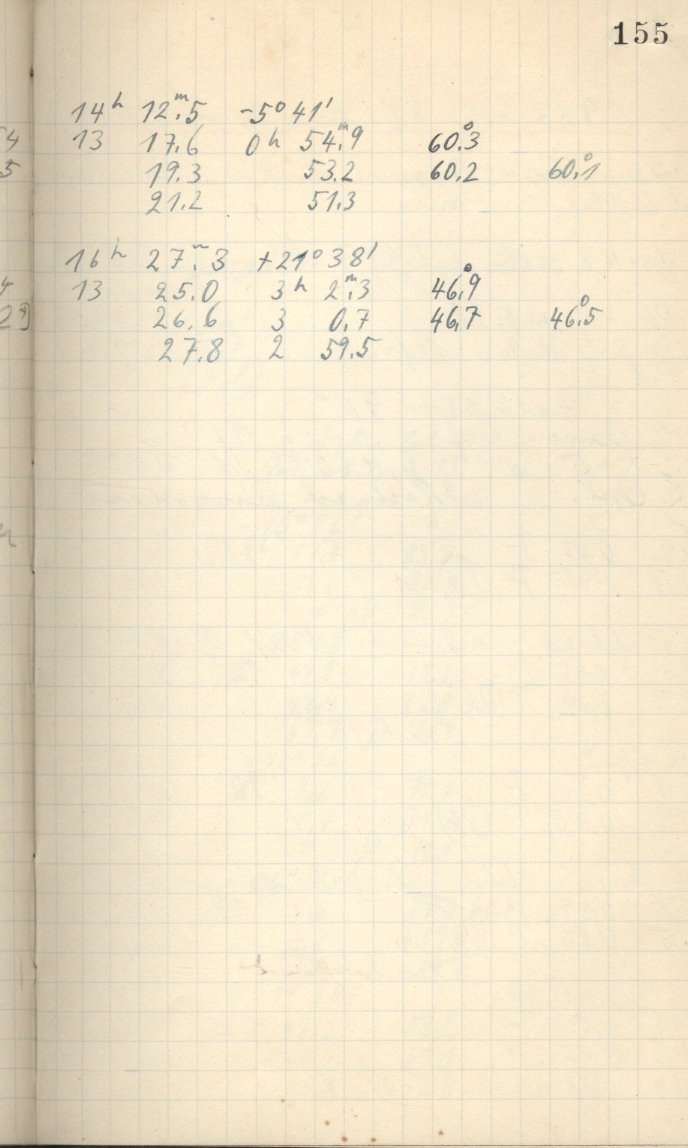 155
14ʰ 12ᵐ.5 -5° 41'
13 17.6 0ʰ 54ᵐ.9 60°.3
19.3 53.2 60.2 60°.1
21.2 51.3
16ʰ 27ᵐ.3 +21° 38'
13 25.0 3ʰ 2ᵐ.3 46°.9
26.6 3 0.7 46.7 46°.5
27.8 2 59.5